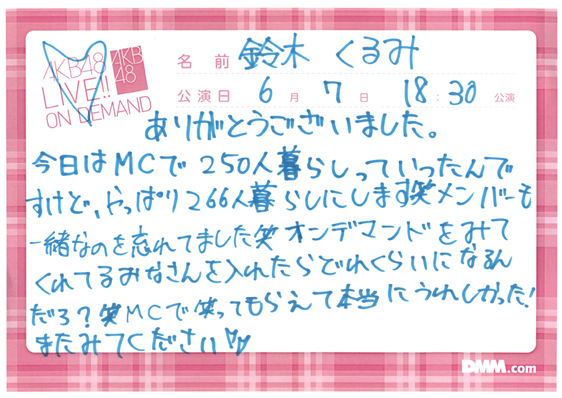 AKB48
LIVE!!
ON DEMAND
AKB
48
名前 鈴木くるみ
公演日 6月 7日 18:30 公演
ありがとうございました。
今日はMCで250人暮らしっていったんで
すけど、やっぱり266人暮らしにします笑メンバーも
一緒なのを忘れてました笑 オンデマンドをみて
くれてるみなさんを入れたらどれくらいになるん
だろ?笑MCで笑ってもらえて本当にうれしかった!
またみてください♡♡
DMM.com